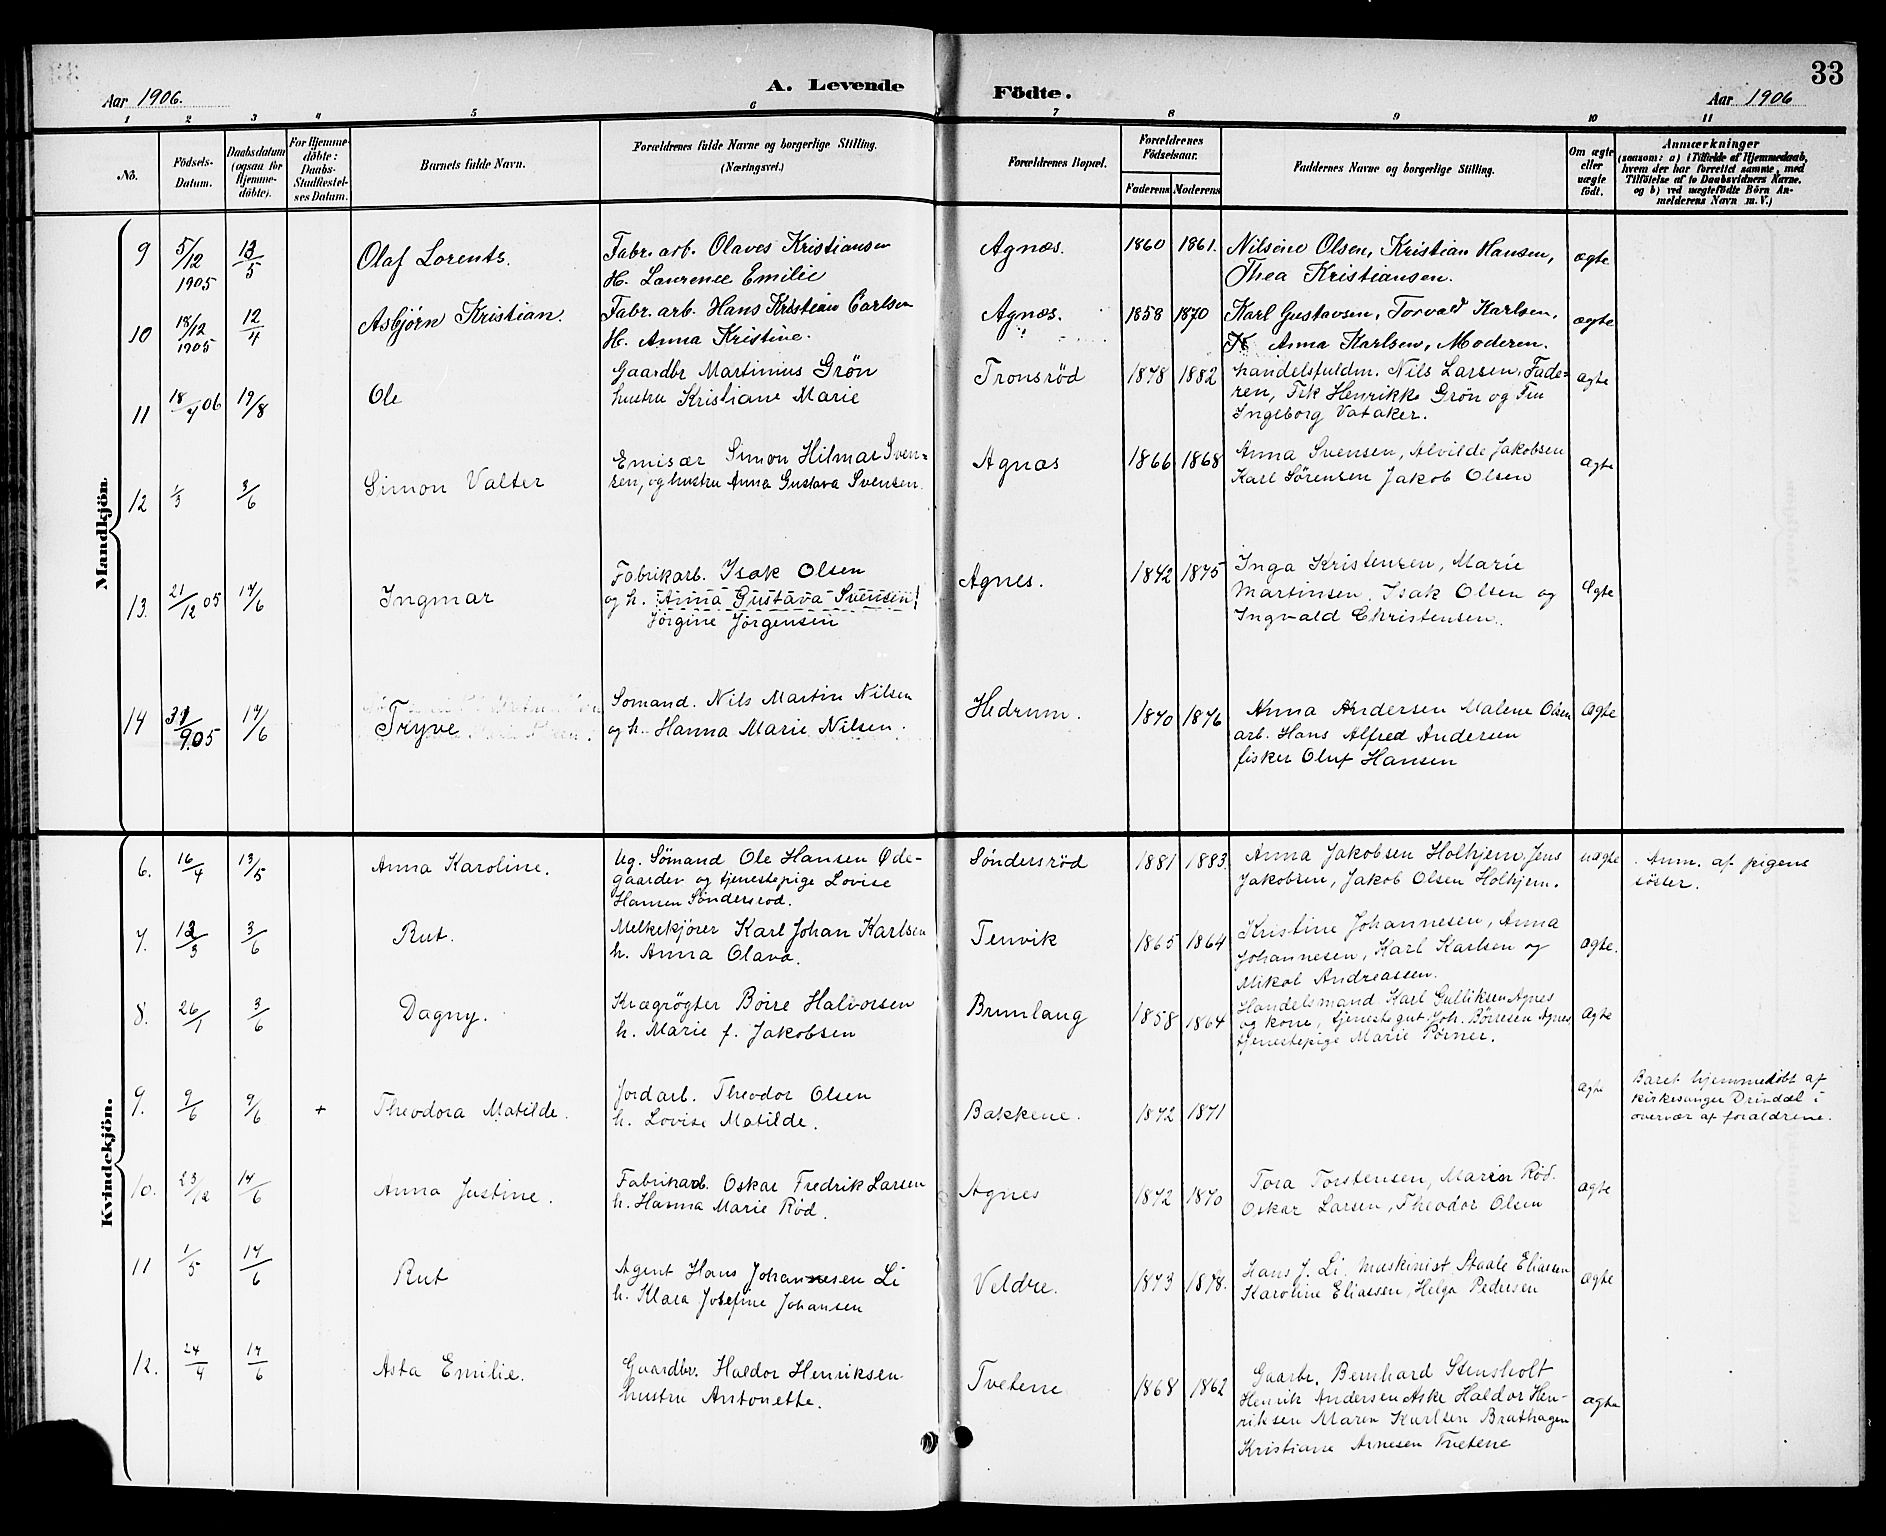 33
A. Levende Födte.
Aar 1906.
Aar 1906
1 2 3 4 5 6 7 8 9 10 11
No.
Födsels-
Datum.
Daabsdatum
(ogsaa for
Hjemme-
döbte).
For Hjemme-
döbte:
Daabs-
Stadfæstel-
ses Datum.
Barnets fulde Navn.
Forældrenes fulde Navne og borgerlige Stilling.
(Næringsvei.)
Forældrenes Bopæl.
Forældrenes
Födselsaar.
Faderens
Moderens
Faddernes Navne og borgerlige Stilling.
Om ægte
eller
uægte
födt.
Anmærkninger
(saasom: a) i Tilfælde af Hjemmedaab,
hvem der har forrettet samme, med
Tilföielse af to Daabsvidners Navne,
og b) ved uægtefödte Börn An-
melderens Navn m. V.)
Mandkjön.
9 5/12 1905 13/5 Olaf Lorents. Fabr. arb. Olaves Kristiansen Agnæs. 1860 1861. Nilsine Olsen, Kristian Hansen, ægte
H. Laurence Emilie Thea Kristiansen.
10 18/12 1905 12/4 Asbjørn Kristian. Fabr. arb. Hans Kristian Carlsen Agnæs. 1858 1870 Karl Gustavsen, Torvald Karlsen, ægte
H. Anna Kristine. Anna Karlsen, Moderen.
11 18/4 06 19/8 Ole Gaardbr Martinius Grön Tronsrød 1878 1882 handelsfuldm. Nils Larsen, Fade- ægte
hustru Kristiane Marie ren, Frk Henrikke Grön og Fru
Ingeborg Vataker.
12 1/3 3/6 Simon Valter Emisær Simon Hilmar Sven- Agnæs 1866 1868 Anna Svensen, Alvilde Jakobsen ægte
sen, og hustru Anna Gustava Svensen. Karl Sørensen Jakob Olsen
13. 21/12 05 17/6 Ingmar Fabrikarb. Isak Olsen Agnes. 1842 1875 Inga Kristensen, Marie Ægte
og h. Anna Gustava Svensen Martinsen, Isak Olsen og
Jörgine Jörgensen Ingvald Christensen.
14 9.05 17/6 Trygve Sømand. Nils Martin Nilsen Hedrum. 1870 1876 Anna Andersen Malene Olsen Ægte
og h. Hanna Marie Nilsen. arb. Hans Alfred Andersen
fisker Oluf Hansen
Kvindekjön.
6. 16/4 13/5 Anna Karoline. Ug. Sømand Ole Hansen Øde- Søndersrød 1881 1883. Anna Jakobsen Holhjem, Jens uægte Anm. af pigens
gaarden og tjenestepige Lovise Jakobsen, Jakob Olsen Holhjem. søster.
Hansen Søndersrød.
7. 12/3 3/6 Rut. Melkekjører Karl Johan Karlsen Tenvik 1865 1864 Kristine Johannesen, Anna ægte.
h. Anna Olava. Johannesen, Karl Karlsen og
Mikal Andreassen.
8. 26/1 3/6 Dagny. Krægrögter Børre Halvorsen Brunlaug 1858 1864 Handelsmand Karl Gulliksen Agnes Ægte
h. Marie f. Jakobsen og kone, tjenestegut Joh. Børresen Agnes,
tjenestepige Marie
9. 9/6 9/6 + Theodora Matilde. Jordarb. Theodor Olsen Bakkene. 1872 1871 ægte Baret hjemmedøbt af
h. Lovise Matilde. kirkesanger Drivdal i
overvær af forældrene.
10. 23/12 17/6 Anna Justine. Fabrikarb. Oskar Fredrik Larsen Agnes 1872 1870 Tora Torstensen, Maren Rød. ægte
h. Hanna Marie Rød. Oskar Larsen, Theodor Olsen
11 1/5 17/6 Rut Agent Hans Johannesen Li Veldre. 1873 1878. Hans J. Li, maskinist Staale Eliassen Ægte
h. Klara Josefine Johansen Karoline Eliassen, Helga Pedersen
12. 24/4 17/6 Asta Emilie. Gaardbr. Haldor Henriksen Tvetene 1868 1862 Gaarbr. Bernhard Stensholt ægte
hustru Antonette. Henrik Andersen Aske Haldor Hen-
riksen Maren Karlsen Brathagen
Kristiane Arnesen Tvetene